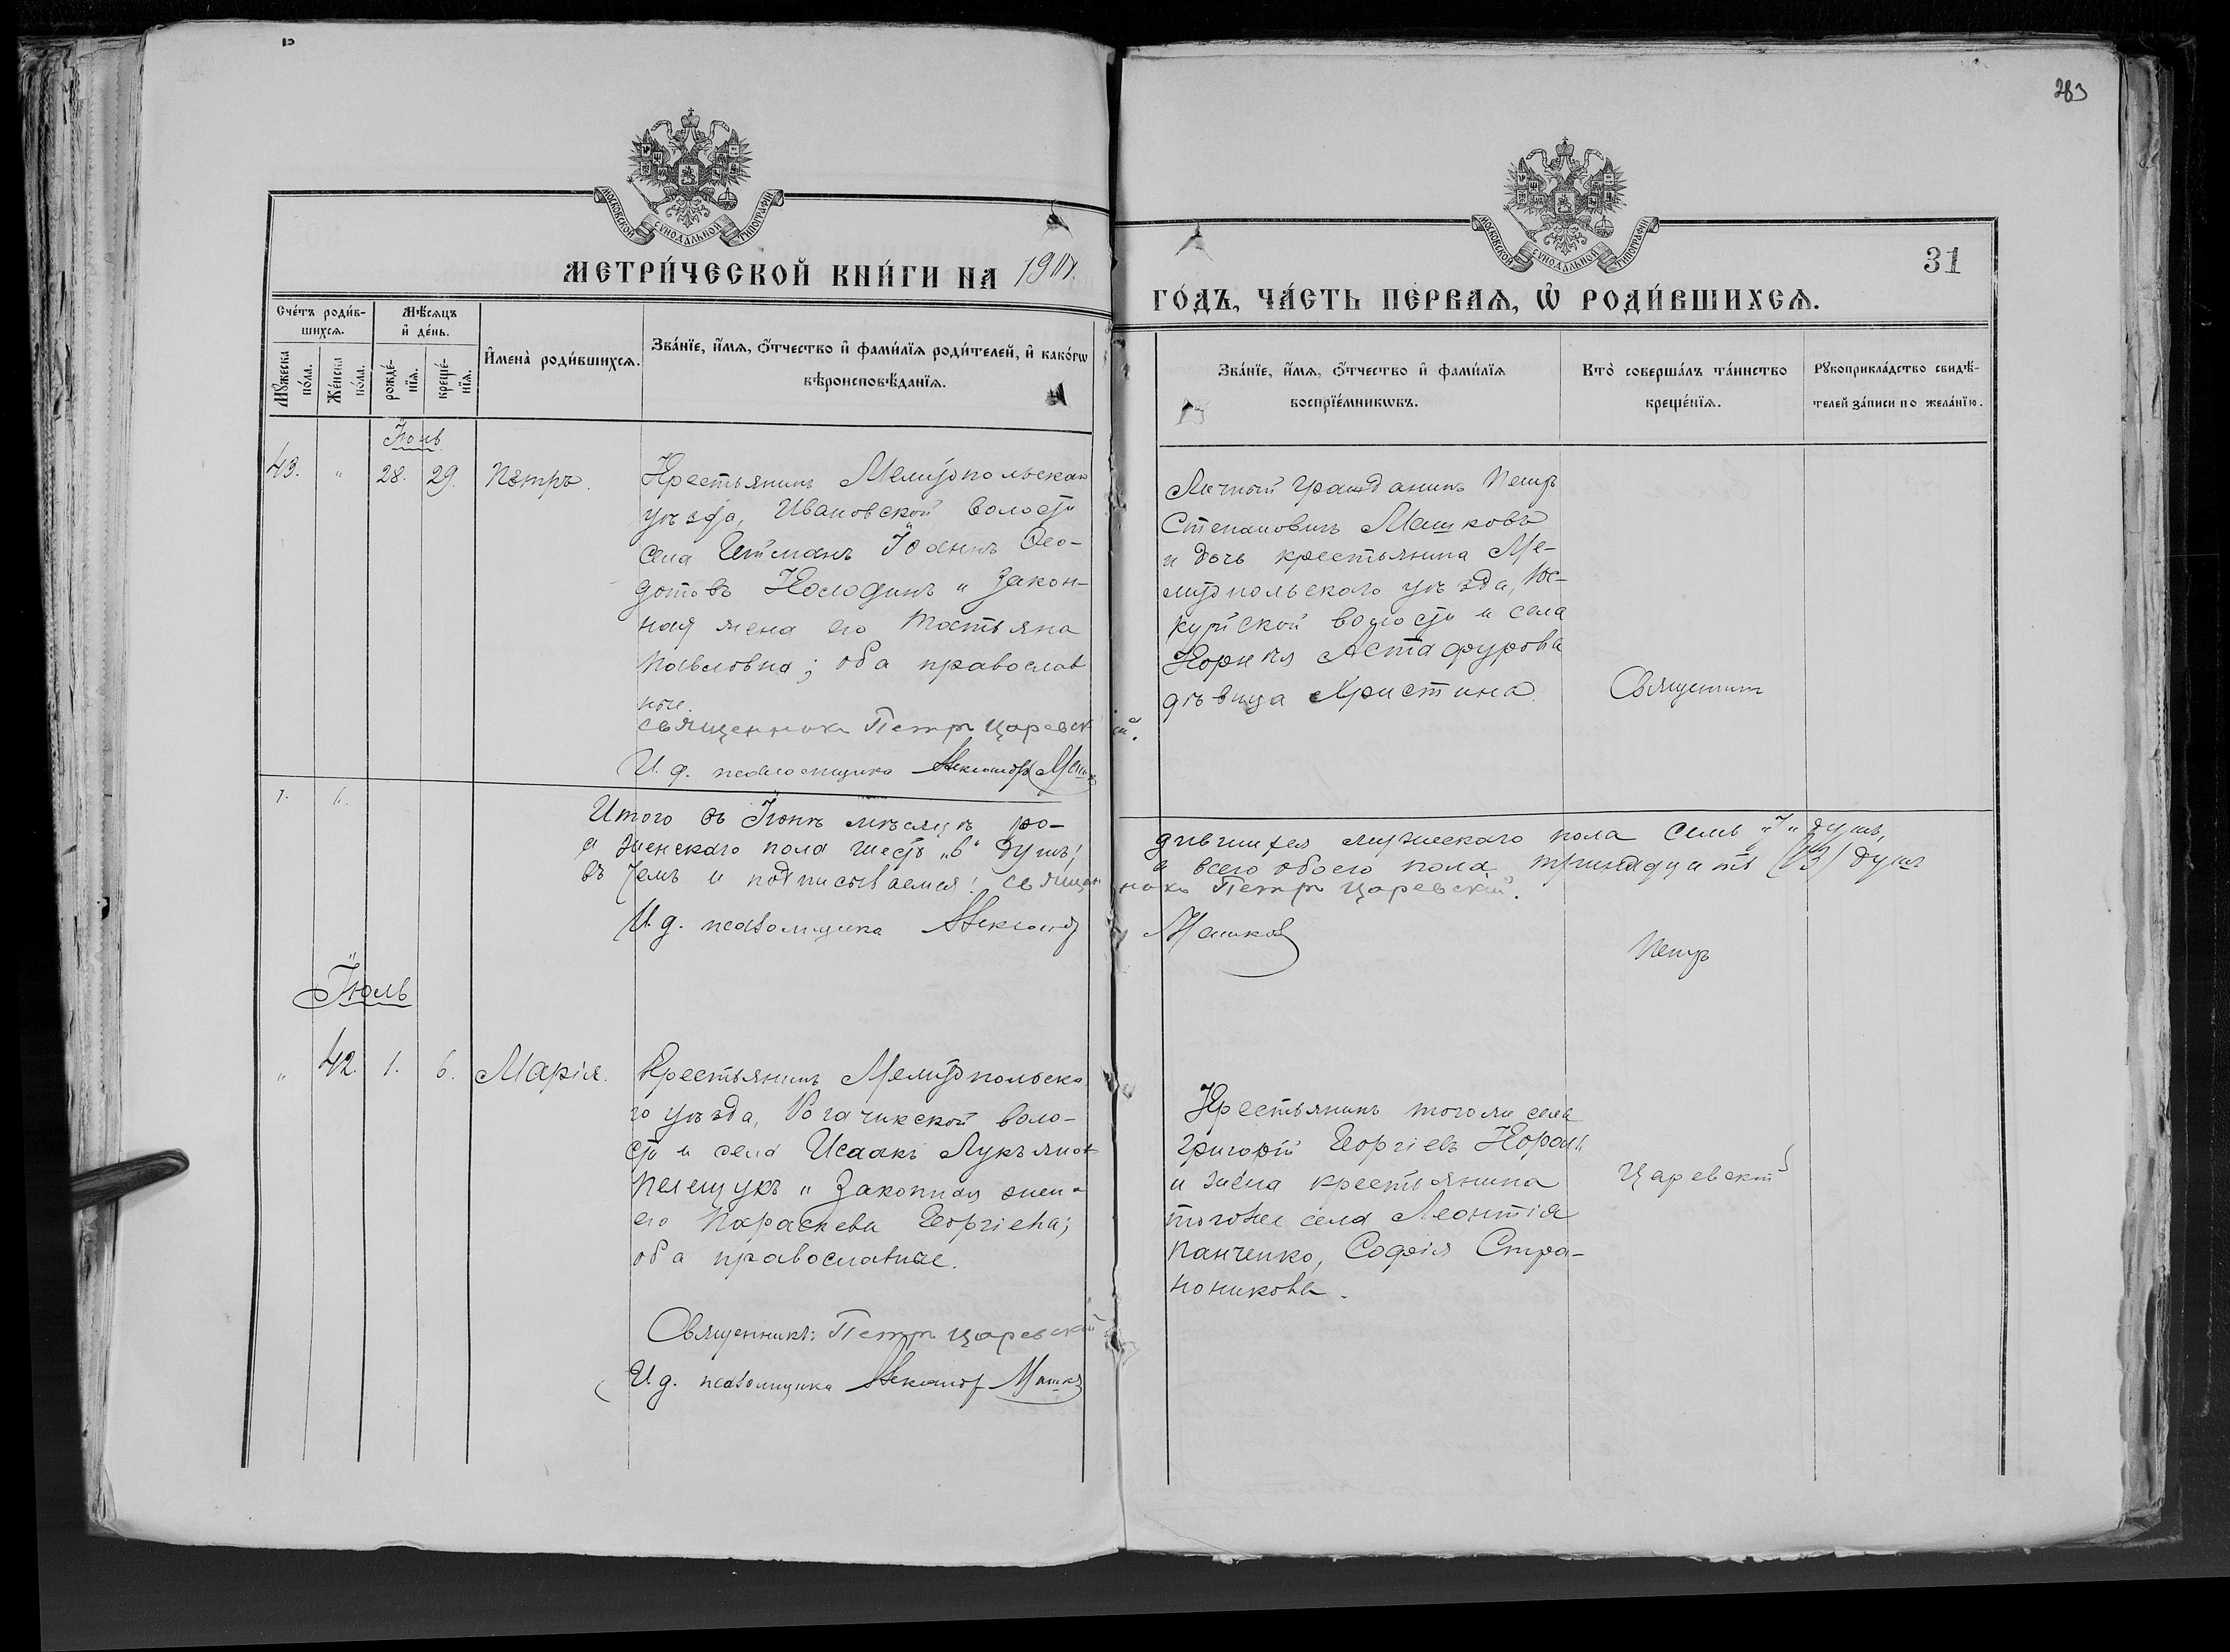 283
МОСКОВСКОЙ СѴНОДАЛЬНОЙ ТИПОГРАФІИ
МОСКОВСКОЙ СѴНОДАЛЬНОЙ ТИПОГРАФІИ
31
МЕТРИ́ЧЕСКОЙ КНИ́ГИ НА
ГО́ДЪ, ЧА́СТЬ ПЕ́РВАѦ, Ѡ РОДИ́ВШИХСѦ.
Сче́тъ роди́в-
шихсѧ.
Мꙋ́жеска по́ла.
Же́нска по́ла.
Мѣ́сѧцъ
и҆ де́нь.
рожде́-
нїѧ.
креще́-
нїѧ.
И҆мена̀ роди́вшихсѧ.
Зва́нїе, и҆́мѧ, ѻ҆́тчество и҆ фами́лїѧ роди́телей, и҆ како́гѡ
вѣроисповѣ́данїѧ.
Зва́нїе, и҆́мѧ, ѻ҆́тчество и҆ фами́лїѧ
воспрїе́мникѡвъ.
Кто̀ соверша́лъ та́инство
креще́нїѧ.
Рꙋкоприкла́дство свидѣ́-
телей за́писи по жела́нїю.
43. " 28. 29. Петръ.
Крестьянинъ Мелитопольскаго
уѣзда, Ивановской волости
села Іоаннъ Ѳео-
дотовъ Колодинъ и закон-
ная жена его Татьяна
Павловна; оба православ
ные.
священникъ Петръ Царевскій.
И. д. псаломщика Александръ Машковъ
Личный гражданинъ Петръ
Степановичъ Машковъ
и дочь крестьянина Ме-
литопольскаго уѣзда,
волости и села
Астафурова
дѣвица Христина.
Священникъ
7. 6.
Итого въ Іюнѣ мѣсяцѣ ро-
дившихся мужескаго пола семь "7" душъ,
а женскаго пола шесть "6" душъ,
а всего обоего пола тринадцать (13) душъ
въ чемъ и подписываемся: священникъ Петръ Царевскій.
И. д. псаломщика Александръ Машковъ
Петръ
Іюль
" 42. 1. 6. Марія.
Крестьянинъ Мелитопольска
го уѣзда, Рогачикской воло-
сти и села Исаакъ Лукьянов
Пелещукъ и законная жена
его Параскева Георгіева;
оба православные.
Священникъ: Петръ Царевскій
И. д. псаломщика Александръ Машковъ
Крестьянинъ того же села
Григорій Георгіевъ Король
и жена крестьянина
того же села Леонтія
Панченко, Софія Стра-
тоникова.
Царевскій